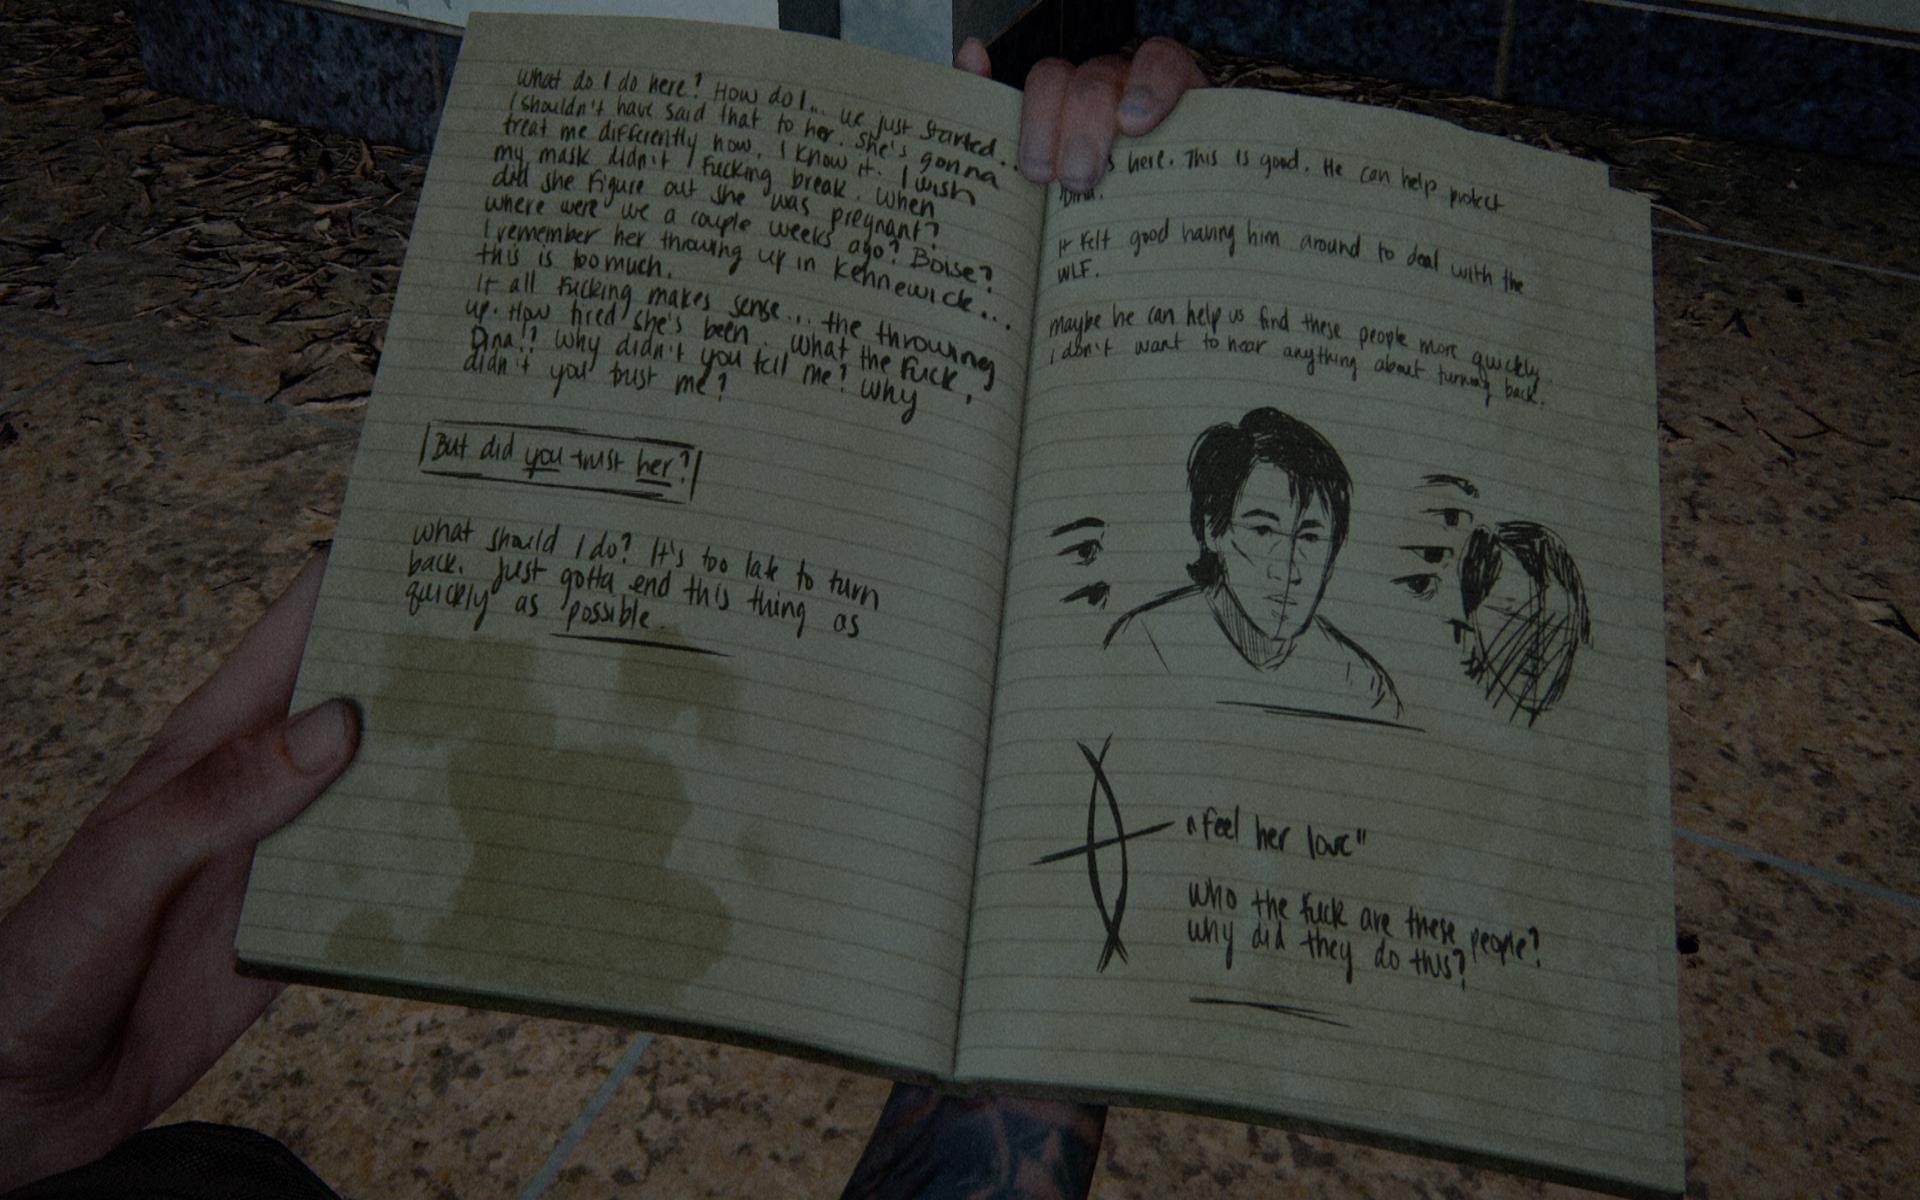 what do I do here? How do I... we just started...
I shouldn't have said that to her. She's gonna
treat me differently now. I know it. I wish
my mask didn't fucking break. When
did she figure out she was pregnant?
where were we a couple weeks ago? Boise?
I remember her throwing up in Kennewick...
this is too much.
It all fucking makes sense... the throwing
up. How tired she's been. What the fuck,
Dina!? Why didn't you tell me? Why
didn't you trust me?
But did you trust her?
what should I do? It's too late to turn
back. Just gotta end this thing as
quickly as possible.
s here. This is good. He can help protect
Dina.
It felt good having him around to deal with the
WLF.
Maybe he can help us find these people more quickly.
I don't want to hear anything about turning back.
"Feel her love"
who the fuck are these people?
why did they do this?